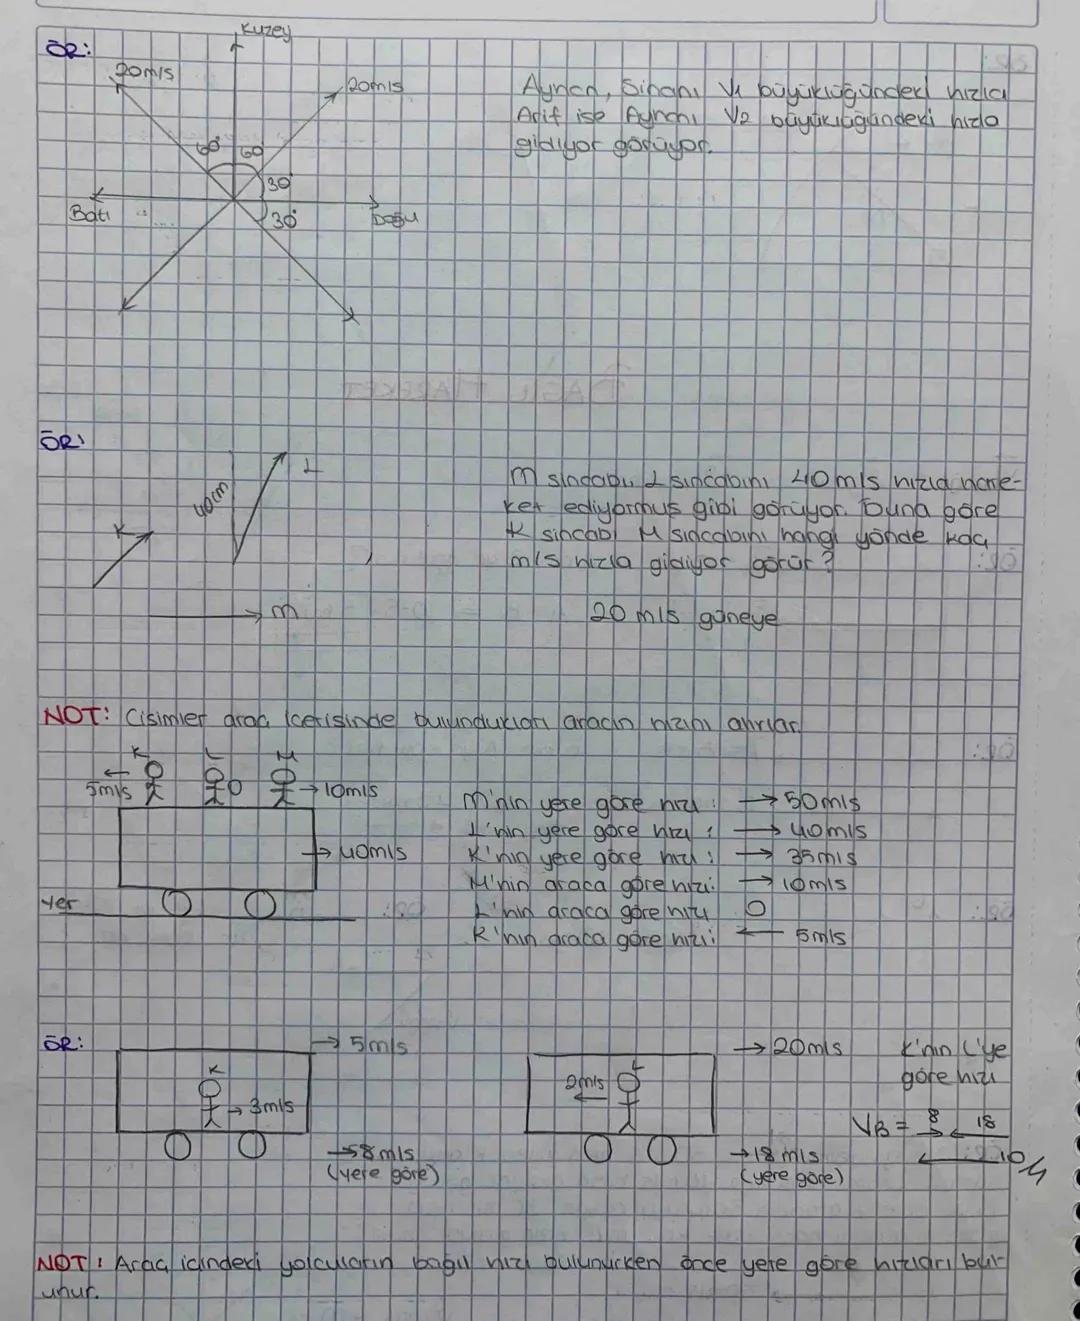 ÖR:
Kuzey
20m/s
20m/s
60° 60
30
Batı
30°
Doğu
Aynan, Sinanı V1 büyüklüğündeki hızla
Arif ise Aynanı V2 büyüklüğündeki hızla
gidiyor görüyor.
ÖR:
L
40cm
K
M
M sincabı, L sincabını 40m/s hızla hare-
ket ediyormuş gibi görüyor. Buna göre
K sincabı M sincabını hangi yönde kaç
m/s hızla gidiyor görür?
20 m/s güneye
NOT: Cisimler araç içerisinde bulundukları aracın hızını alırlar.
K L M
5m/s
0
→ 10m/s
→ 40m/s
Yer
M'nin yere göre hızı: → 50m/s
L'nin yere göre hızı: → 40m/s
K'nın yere göre hızı: → 35m/s
M'nin araca göre hızı: → 10m/s
L'nin araca göre hızı 0
K'nın araca göre hızı: ← 5m/s
ÖR:
→ 5m/s
K
→ 3m/s
→58m/s
(yere göre)
→ 20m/s
L
2m/s
←
→18m/s
(yere göre)
K'nın L'ye
göre hızı
VB = 8 → ← 18
← 10
NOT: Araç içindeki yolcuların bağıl hızı bulunurken önce yere göre hızları bul-
unur.